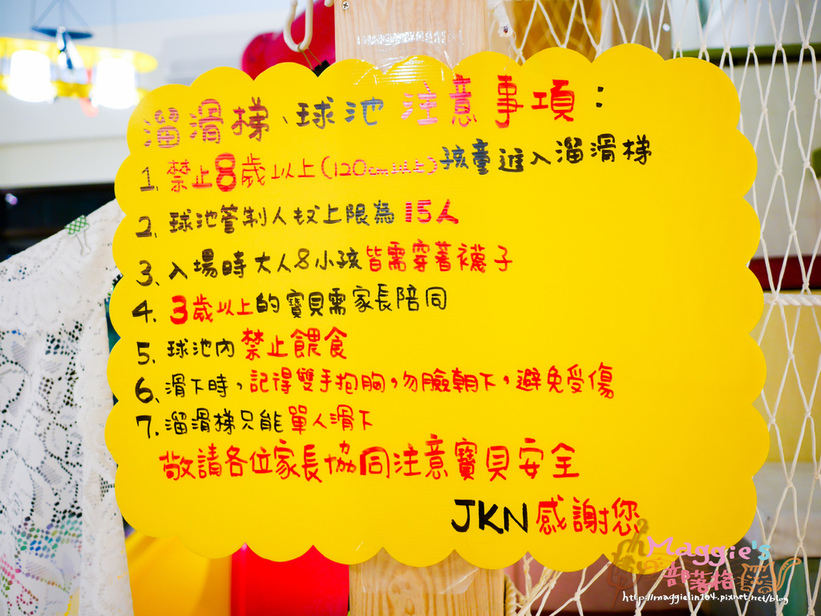 溜滑梯、球池 注意事項：
1. 禁止8歲以上(120cm以上)孩童進入溜滑梯
2. 球池管制人数上限為15人
3. 入場時大人&小孩皆需穿著襪子
4. 3歲以上的寶貝需家長陪同
5. 球池內禁止餵食
6. 滑下時，記得雙手抱胸，勿臉朝下，避免受傷
7. 溜滑梯只能單人滑下
敬請各位家長協同注意寶貝安全
JKN感謝您
Maggie's
部落格
http://maggielin104.pixnet.net/blog